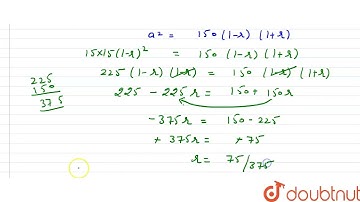 a² = 150 (1-r) (1+r)
15×15(1-r)² = 150 (1-r) (1+r)
225 (1-r) (1-r) = 150 (1-r) (1+r)
225
150
375
225 - 225 r = 150 + 150r
-375r = 150 - 225
+ 375r = +75
r = 75/375
doubtnut